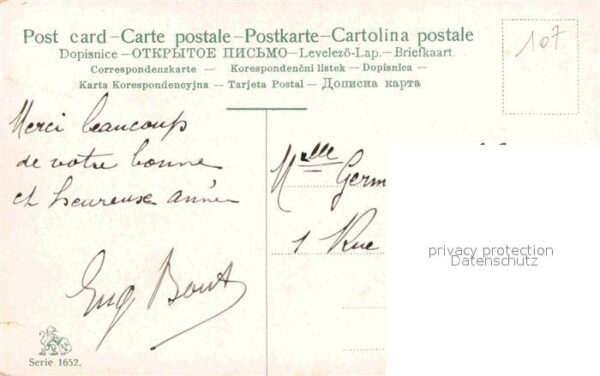 Post card – Carte postale – Postkarte – Cartolina postale
Dopisnice – ОТКРЫТОЕ ПИСЬМО – Levelező-Lap. – Briefkaart.
Correspondenzkarte – Korespondenčni listek – Dopisnica –
Karta Korespondencyjna – Tarjeta Postal – Дописна карта
107
Merci beaucoup
de votre bonne
et heureuse année
Eug Bout
Mlle
Germ
1 Rue
privacy protection
Datenschutz
Serie 1652.